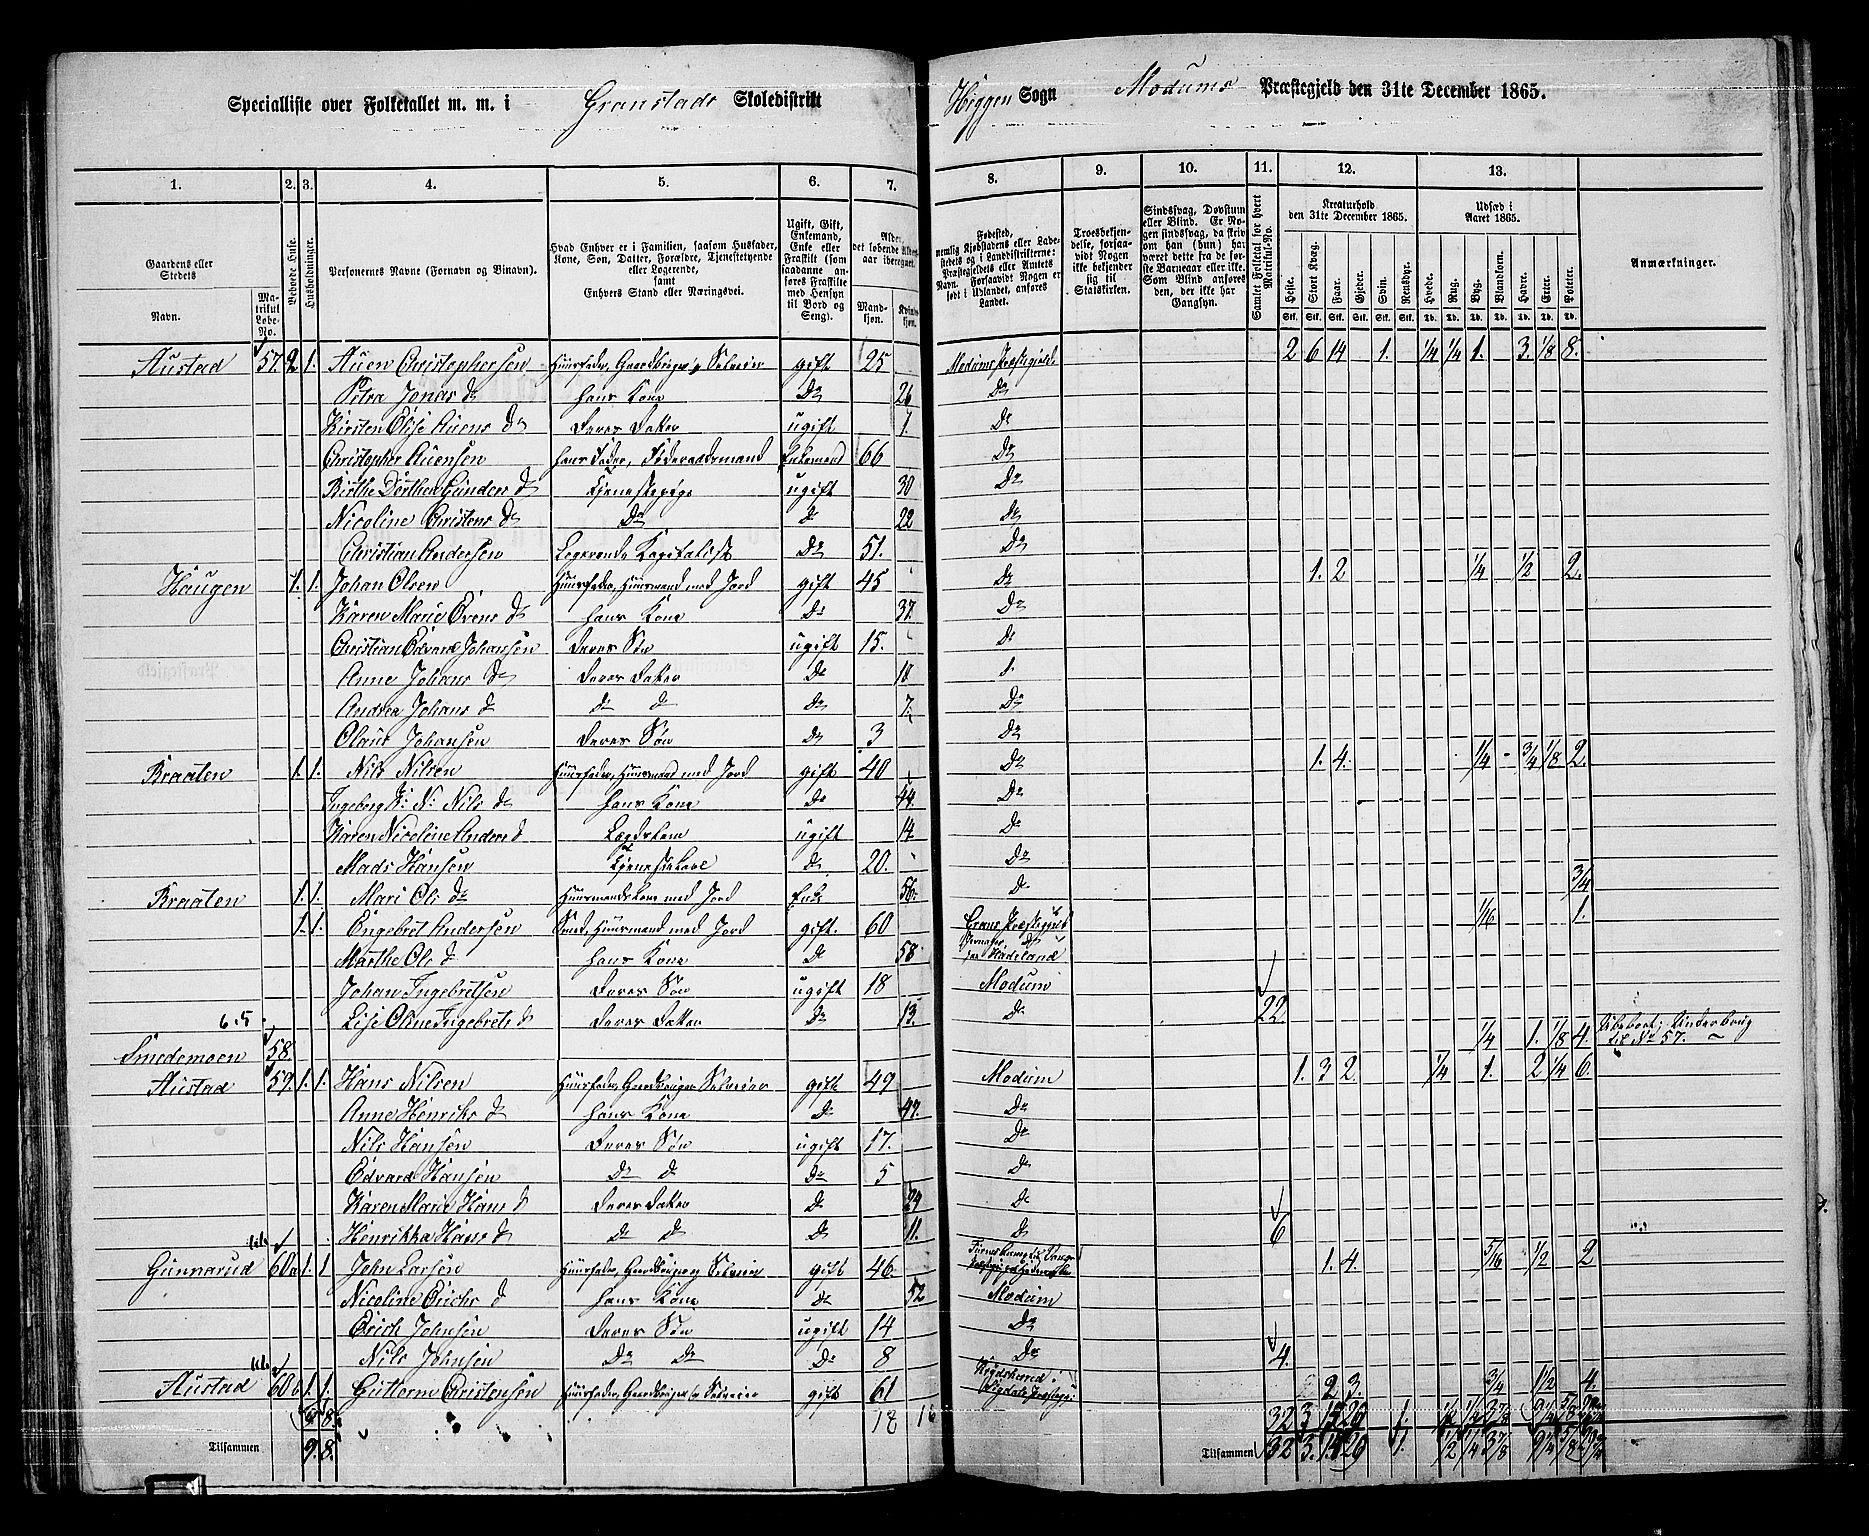 Specialliste over Folketallet m. m. i Granstads Skoledistrikt Higgen Sogn Modums Præstegjeld den 31te December 1865.
1. 2. 3. 4. 5. 6. 7. 8. 9. 10. 11. 12. 13.
Gaardens eller Stedets Navn. Matrikul Løbe-No. Beboede Huse. Husholdninger. Personernes Navne (Fornavn og Tilnavn). Hvad Enhver er i Familien, saasom Husfader, Kone, Søn, Datter, Forældre, Tjenestetyende eller Logerende, samt Enhvers Stand eller Næringsvei. Ugift, Gift, Enkemand, Enke eller Fraskilt (som saadanne anføres Fraskilte med Hensyn til Bord og Seng). Mandkjøn. Kvindekjøn.
Fødested, Troesbekjendelse, forsaavidt Nogen ikke bekjender sig til Statskirken. Sindssvag, Døvstum eller Blind. Samlet Folketal for hvert Matrikul-No. Kreaturhold den 31te December 1865. Udsæd i Aaret 1865. Anmærkninger.
Heste. Stort Kvæg. Faar. Gjeder. Svin. Rensdyr. Hvede. Rug. Byg. Blandkorn. Havre. Erter. Poteter.
Austad 57 2 1. Auen Christophersen Huusfader, Gaardbruger Selveier gift 25 Modums Præstegjeld 2 6 14 1. 1/4 1/4 1. 3. 1/8 8.
Petra Jonas d hans Kone Do 26 Do
Kirsten Elise Auens D deres Datter ugift 1 Do
Christopher Auensen hans Fader, Føderaadsmand Enkemand 66 Do
Birthe Dorthea Gunders d Tjenestepige ugift 30 Do
Nicoline Christens d Do d 22 Do
Christian Andersen Logerende Kapitalist Do 51. Do
Haugen 1. 1. Johan Olsen Huusfader, Huusmand med Jord gift 45 Do 1. 2 1/4 1/2 2.
Karen Marie Evens D hans Kone Do 37. Do
Christian Edvard Johansen deres Søn ugift 15. Do
Anne Johans D deres Datter Do 10
Andrea Johans d do d Do 7. Do
Olaus Johansen deres Søn Do 3 Do
Braaten 1. 1. Nils Nilsen Huusfader, Huusmand med Jord gift 40 Do 1. 4. 1/4 3/4 1/8 2.
Ingeborg K: N: Nils d hans Kone Do 44. Do
Karen Nicoline Anders d Lægdslem ugift 14 Do
Mads Hansen Tjenestekarl d 20. Do
Braaten 1. 1. Mari Ols d Huusmandskone med Jord Enke 56. D. 3/4
1. 1. Engebret Andersen Smed, Huusmand med Jord gift. 60 Grans Præstegjeld 1/16 1.
Marthe Ols d hans Kone D 58 paa Hadeland
Johan Ingebretsen deres Søn ugift 18 Modum
6. 5. Lise Oline Ingebrets d deres Datter Do 13. D 22
Smedemoen 58 1/4 1. 1/8 4. Ubeboet; Underbrug til No 57.
Austad 59 1. 1. Hans Nilsen Huusfader, Gaardbruger Selveier gift 49 Modum 1. 3 2. 1/4 1. 2 1/4 6.
Anne Henriks d hans Kone D 47. Do
Nils Hansen deres Søn ugift 17. Do
Edvard Hansen Do d Do 5 Do
Karen Marie Hans d deres Datter D D
Henrikka Hans d D D D 11. D 6
Gunnarud 60a 1. 1 John Larsen Huusfader, Gaardbruger Selveier gift 46. 1. 4. 5/16 1/2 2
Nicoline Erichs d hans Kone do 52 Modum
Erich Johnsen deres Søn ugift 14 Do
Nils Johnsen Do Do Do 8 Do 4.
Austad 60b 1. 1. Guttorm Christensen Huusfader, Gaardbruger Selveier gift 61 Sigdals Præstegj: 2 3. 3/4 1/2 4.
8. 18 16 32 3 15 26 1. 1/2 1/4 3 7/8 9 1/4 5/8
Tilsammen 9. 8. Tilsammen 32 3. 15 29 1. 1/2 1/4 3 7/8 9 1/4 5/8